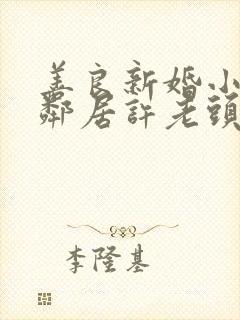 善良新婚小
鄰居許老頭
李隆基